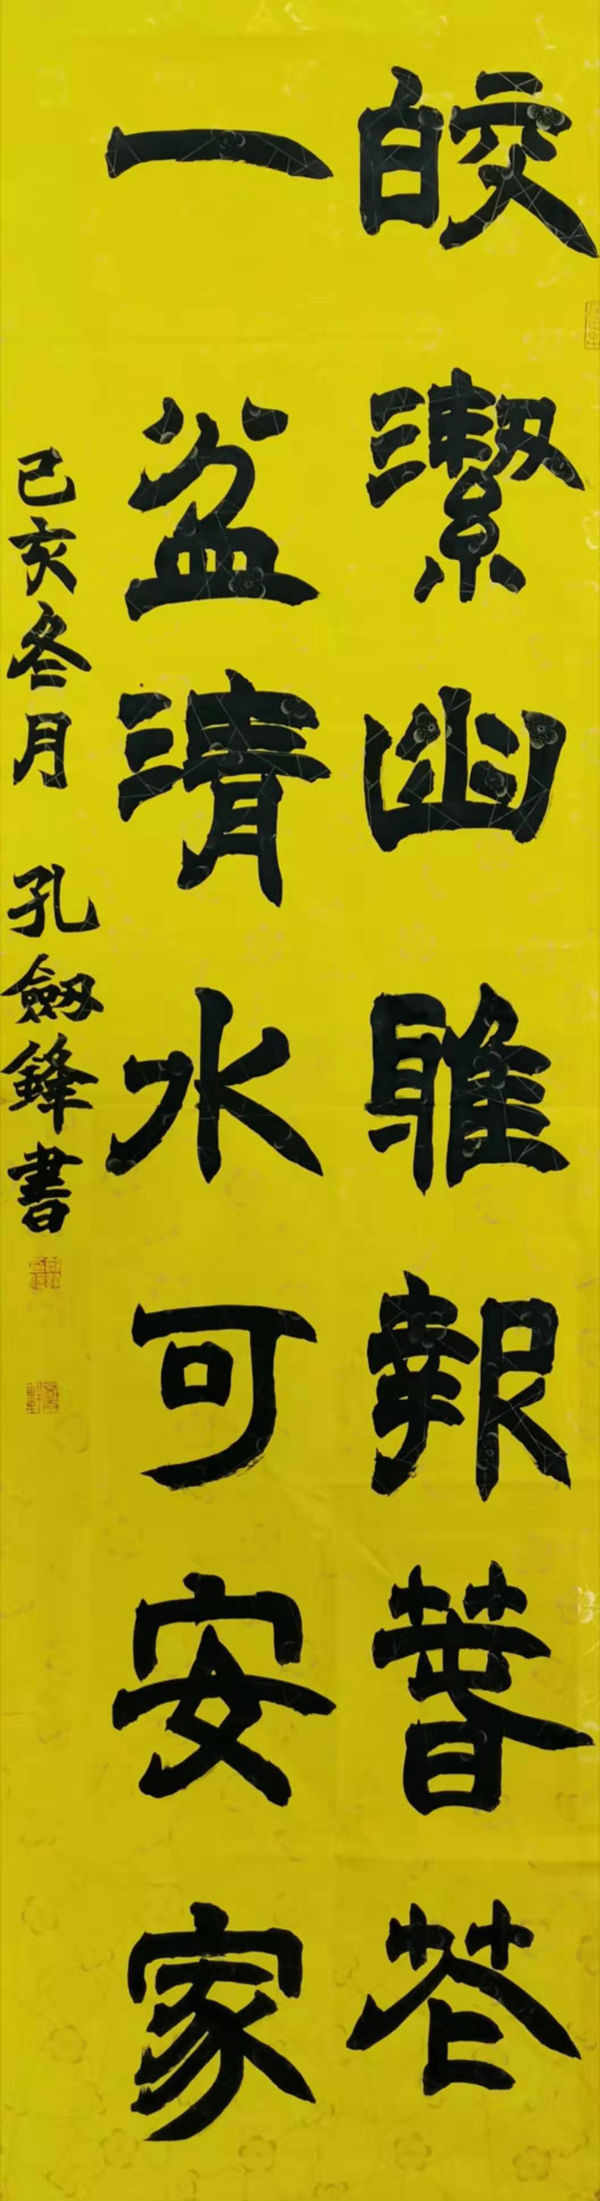 皎潔幽雅報春花
一盆清水可安家
己亥冬月 孔劍鋒書